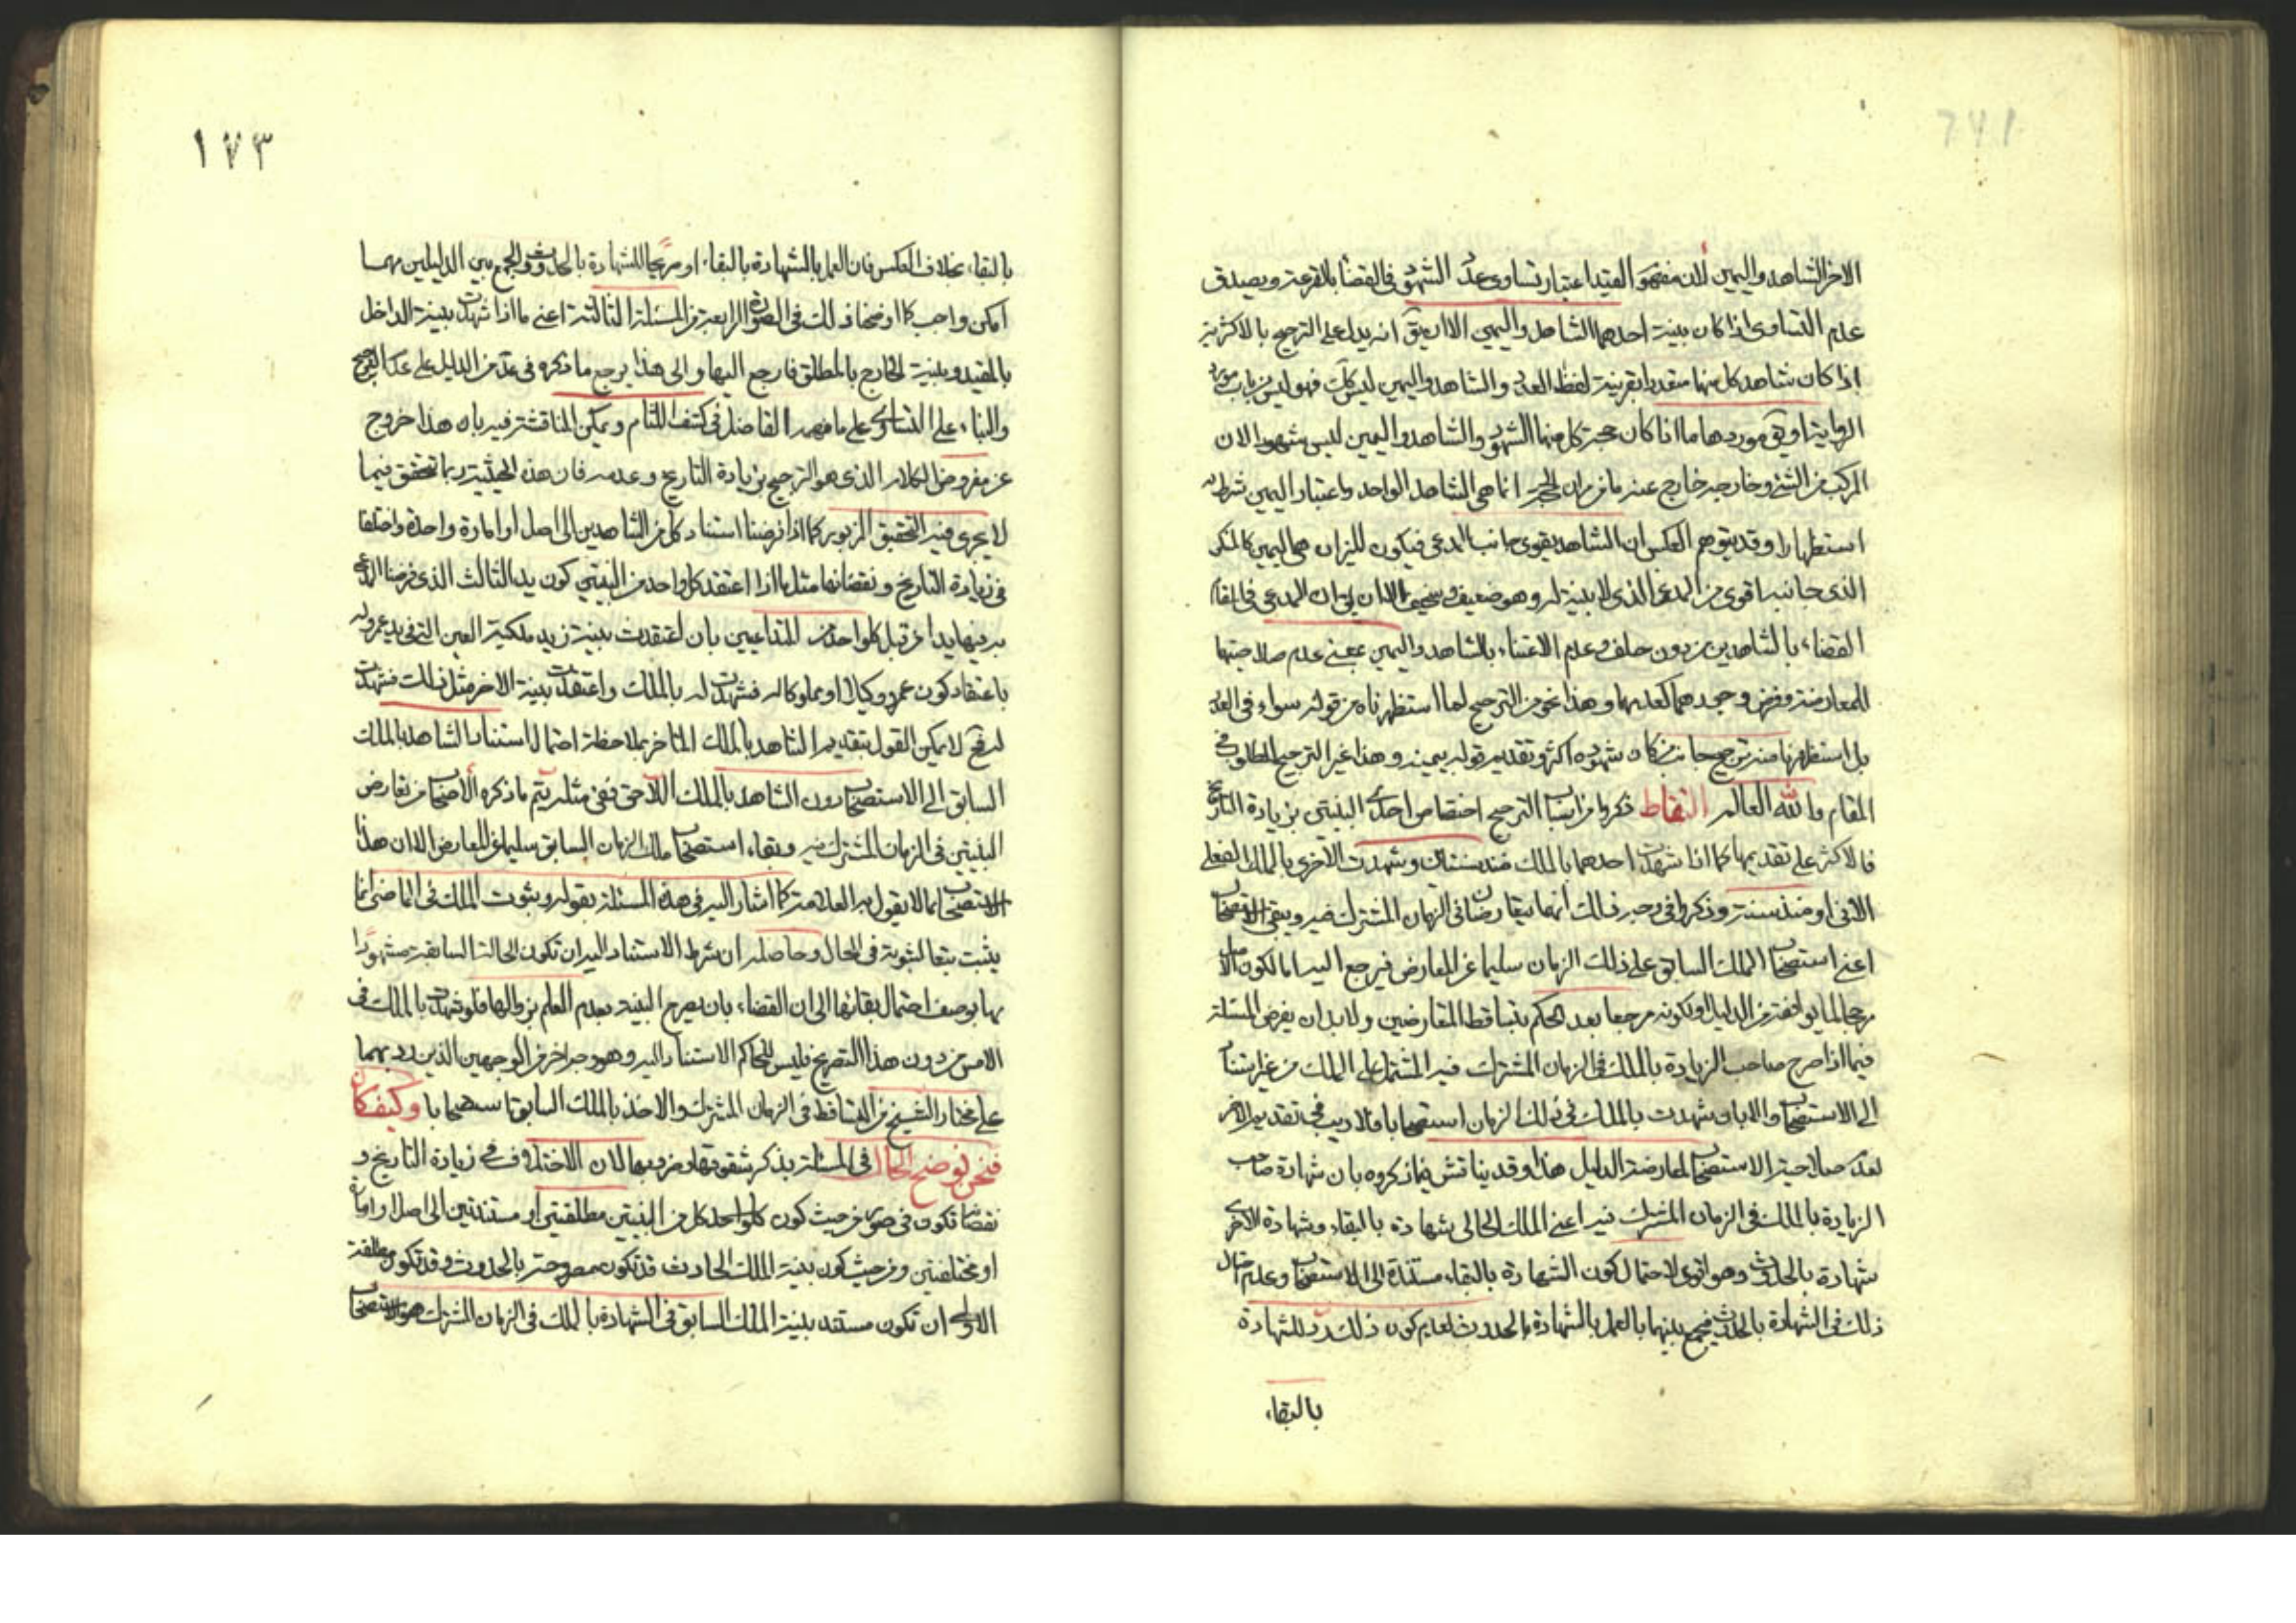 الاخر الشاهد واليمين لان مفهوم القيد اعتبار تساوى عدد الشهود فى القضا بالقرعة ويصدق
عدم التساوى اذا كان بينة احدهما الشاهد واليمين الا ان يق انه يدل على الترجيح بالاكثرية
اذا كان شاهد كل منهما متعددا بقرينة لفظ العدد والشاهد واليمين ليس كك فهو ليس من باب مورد
الرواية او يق موردها ما اذا كان حجة كل منهما الشهود والشاهد واليمين ليس شهودا لان
المركب من الشئ وخارجه خارج عنه ما فر ان الحجر انما هى الشاهد الواحد واعتبار اليمين شرط له
استظهارا وقد يتوهم العكس ان الشاهد يقوى جانب المدعى فيكون الميزان هى اليمين كالمنكر
الذى جانبه اقوى من المدعى الذى لا بينة له وهو ضعيف وسخيف الا ان يق ان المدعى فى القام
القضاء بالشاهدين من دون حلف وعدم الاعتناء بالشاهد واليمين بمعنى عدم صلاحيتها
للمعارضة وفرض وجودهما كعدمهما وهذا نحو من الترجيح لما استظهرناه من قوله سواء فى العدد
بل استظهرنا منه ترجيح جانب من كان شهوده اكثر وتقديم قوله بيمينه وهذا غير الترجيح المطلوب فى
المقام والله العالم التقاط ذكروا من اسباب الترجيح اختصاص احدى البينتين بزيادة التاريخ
فالاكثر على تقديمها كما اذا شهدت احدهما بالملك منذ سنتان وشهدت الاخرى بالملك الفعلى
الانى او منذ سنة وذكروا فى وجه ذلك انهما يتعارضان فى الزمان المشترك فيه ويبقى الاستصحاب
اعنى استصحاب الملك السابق على ذلك الزمان سليما عن المعارض فيرجع اليه اما لكون الاصل
مرجحا لما يوافقه من الدليل او لكونه مرجعا بعد الحكم بتساقط المتعارضين ولابد ان يفرض المسئلة
فيما اذا صرح صاحب الزيادة بالملك فى الزمان المشترك فيه المشتمل على الملك من غير استناد
الى الاستصحاب والا بان شهدت بالملك فى ذلك الزمان استصحابا فلا ريب فى تقديم الاخر
لعدم صلاحية الاستصحاب لمعارضة الدليل هذا وقد يناقش فيما ذكروه بان شهادة صاحب
الزيادة بالملك فى الزمان المشترك فيه اعنى الملك الحالى شهادة بالبقاء وشهادة الاخرى
شهادة بالحدوث وهو اقوى لاحتمال كون الشهادة بالبقاء مستندة الى الاستصحاب وعدم احتمال
ذلك فى الشهادة بالحدوث فيجمع بينهما بالعمل بالشهادة بالحدوث لعدم كون ذلك رد للشهادة
بالبقاء
١٧٣
بالبقاء بخلاف العكس فان العمل بالشهادة بالبقاء او مرجحا للشهادة بالحدوث والجمع بين الدليلين مهما
امكن واجب كما اوضحنا ذلك فى الصورة الرابعة من المسئلة الثالثة اعنى ما اذا شهدت بينة الداخل
بالمقيد وبينة الخارج بالمطلق فارجع اليها والى هذا يرجع ما ذكره فى عد من الدليل على عدم الترجيح
والبناء على التساوى على ما فهمه الفاضل فى كشف اللثام ويمكن المناقشة فيه بان هذا خروج
عن مفروض الكلام الذى هو الترجيح بزيادة التاريخ وعدمه فان هذه الحيثية ربما تحقق فيما
لا يجرى فيه التحقيق المزبور كما اذا فرضنا استناد كل من الشاهدين الى اصل او امارة واحدة واختلفا
فى زيادة التاريخ ونقصانها مثل ما اذا اعتقد كل واحد من البينتين كون يد الثالث الذى فرضنا المدعى
به بينهما يدا عن قبل كل واحد من المتداعيين بان اعتقدت بينة زيد ملكية العين التى فى يد عمرو له
باعتقاد كون عمرو وكيلا او مملوكا له فشهدت له بالملك واعتقدت بينة الاخر مثل ذلك فشهدت
له فح لا يمكن القول بتقديم الشاهد بالملك المتاخر بملاحظة احتمال استناد الشاهد بالملك
السابق الى الاستصحاب دون الشاهد بالملك اللاحق ففى مثله يتم ما ذكره الاصحاب من تعارض
البينتين فى الزمان المشترك فيه وبقاء استصحاب ملك الزمان السابق سليما عن المعارض الا ان هذا
الاستصحاب مما لا يقول به العلامة كما اشار اليه فى هذه المسئلة بقوله وبثوت الملك فى الماضى انما
يثبت تبعا لثبوته فى الحال وحاصله ان شرط الاستناد اليه ان تكون الحالة السابقة مشهودا
بها بوصف احتمال بقائها الى ان القضاء بان يصرح البينة بعدم العلم بزوالها فلو شهدت بالملك فى
الامس من دون هذا التصريح فليس للحاكم الاستناد اليه وهو وجه اخر من الوجهين الذين رد بهما
على مختار الشيخ من التساقط فى الزمان المشترك والاخذ بالملك السابق استصحابا وكيفكان
فنحن نوضح الحال فى المسئلة بذكر شقوقها وفروعها لان الاختلاف فى زيادة التاريخ و
نقصا تكون فى صور من حيث كون كل واحد من البينتين مطلقتين او مستندتين الى اصل او امارة
او مختلفتين ومن حيث كون بينة الملك الحادث قد تكون مصرحة بالحدوث وقد تكون مطلقة
الاولى ان تكون مستند بينة الملك السابق فى الشهادة بالملك فى الزمان المشترك هو الاستصحاب